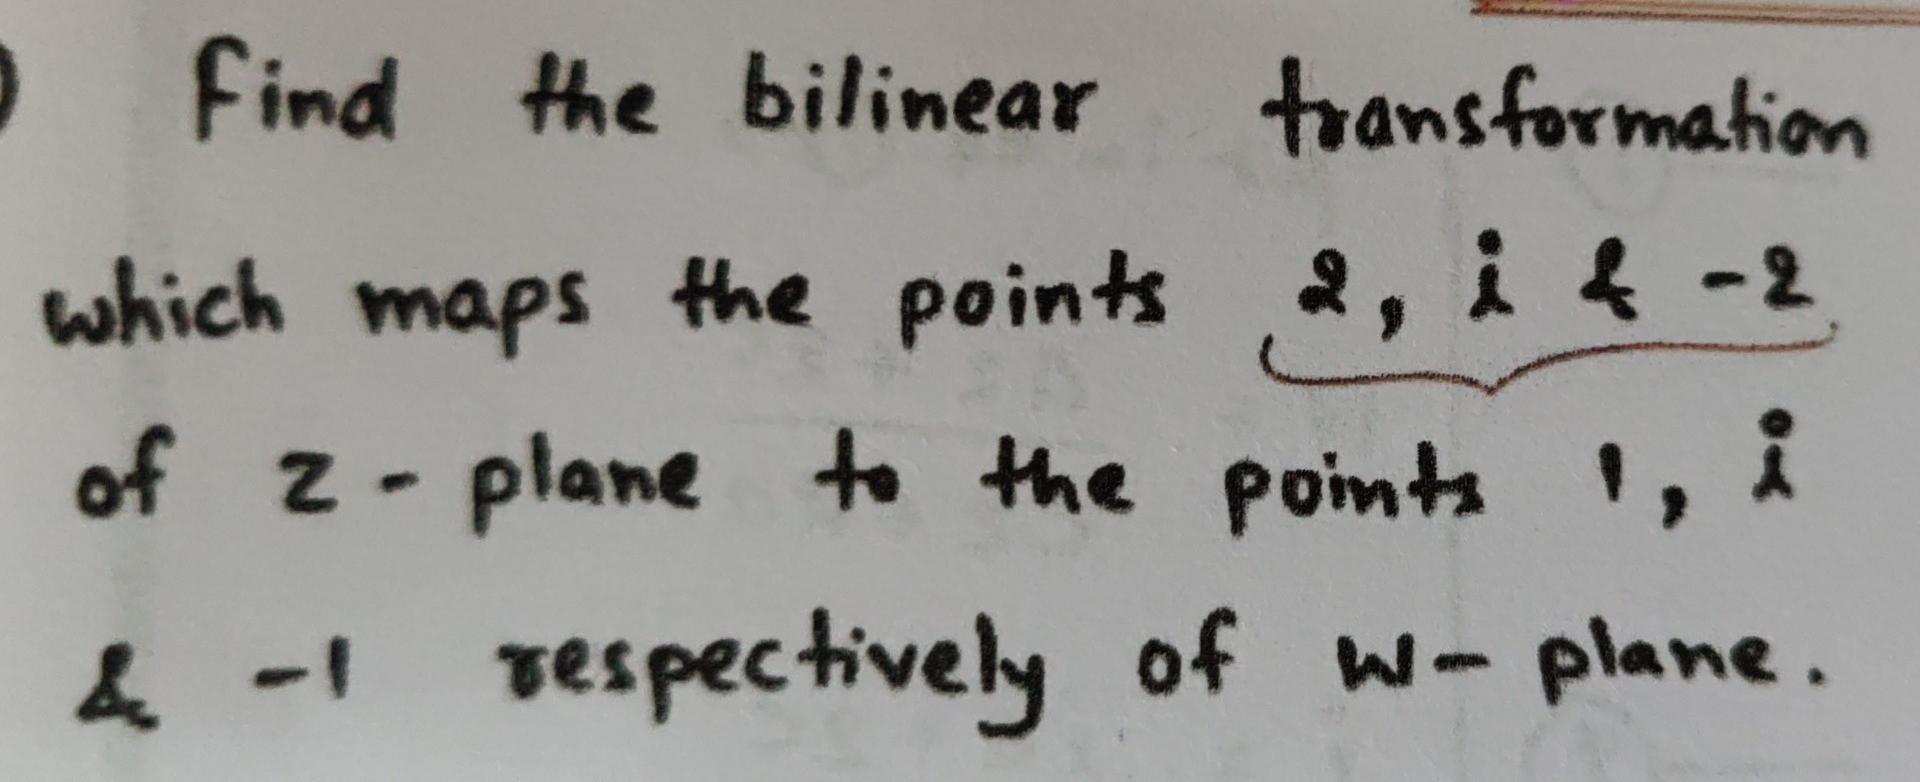 ) Find the bilinear transformation
which maps the points 2, i & -2
of z - plane to the points 1, i
& -1 respectively of w - plane.